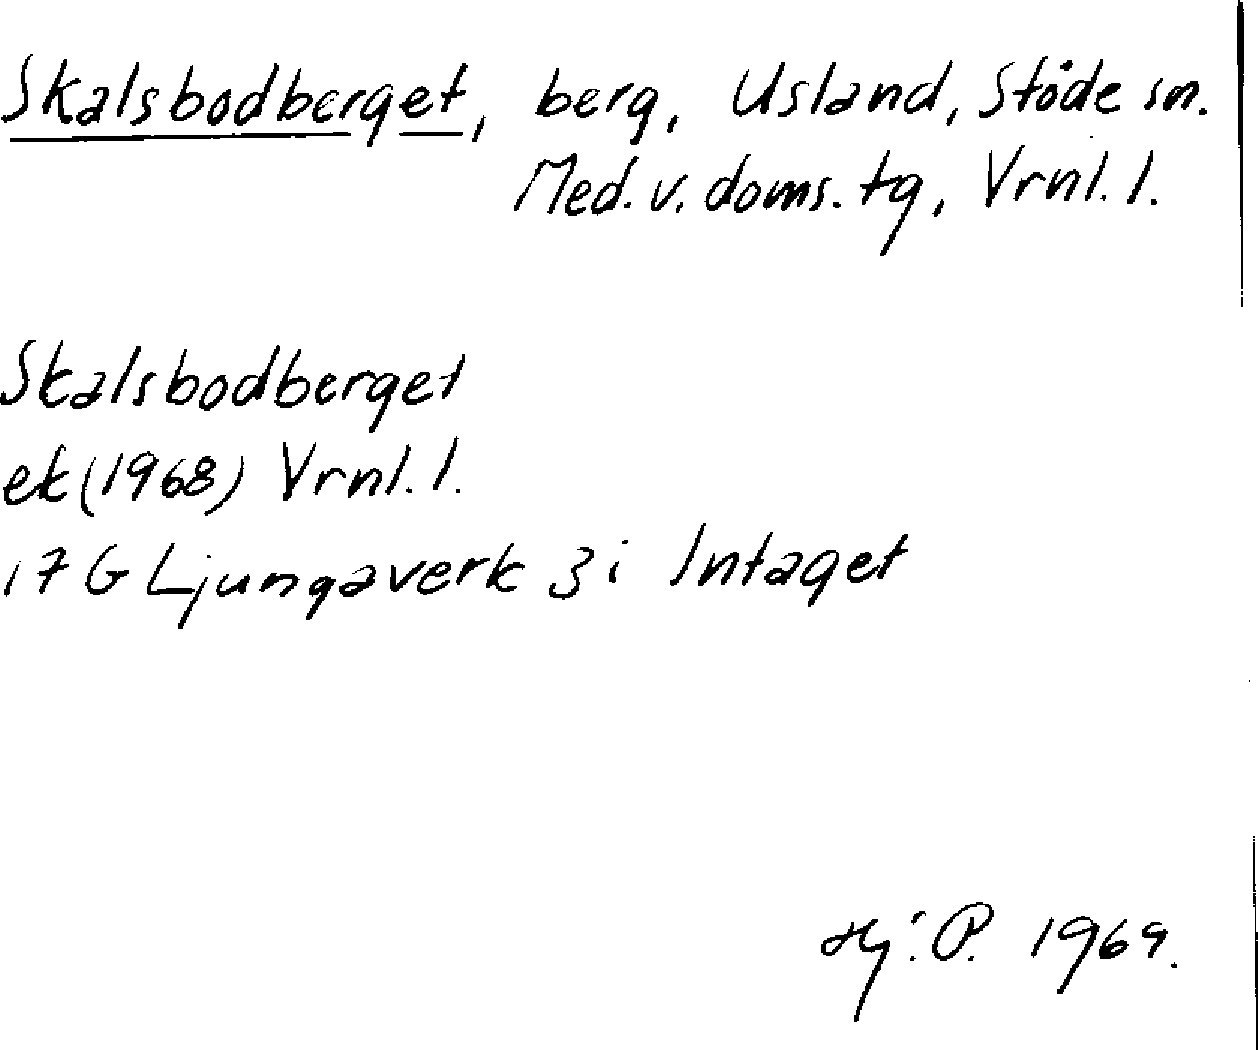 Skalsbodberget, berg, Usland, Stöde sn.
Med. v. doms. tg, Vrnl. l.
Skalsbodberget
ek (1968) Vrnl. l.
17 G Ljungaverk 3 i Intaget
Hj. P. 1969.